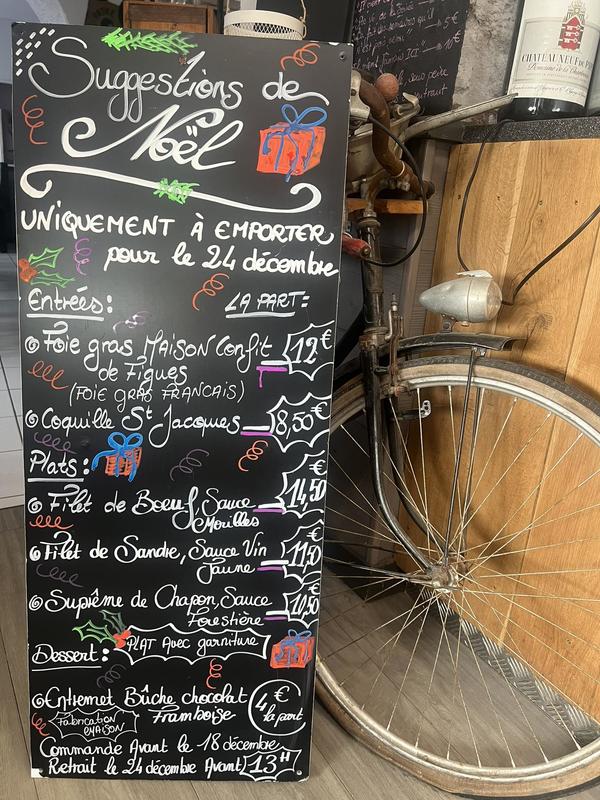 Suggestions de
Noël
UNIQUEMENT À EMPORTER
pour le 24 décembre
Entrées: LA PART:
Foie gras MAISON Confit 12€
de Figues
(FOIE GRAS FRANCAIS)
Coquille St Jacques 8,50€
Plats:
Filet de Boeuf, Sauce 14,50
Morilles
Filet de Sandre, Sauce Vin 11,50
Jaune
Suprême de Chapon, Sauce 10,50
Forestière
PLAT Avec garniture
Dessert:
Entremet Bûche chocolat 4€
Framboise la part
Fabrication
MAISON
Commande Avant le 18 décembre
Retrait le 24 décembre Avant 13H
CHÂTEAUNEUF DU
5€
10€